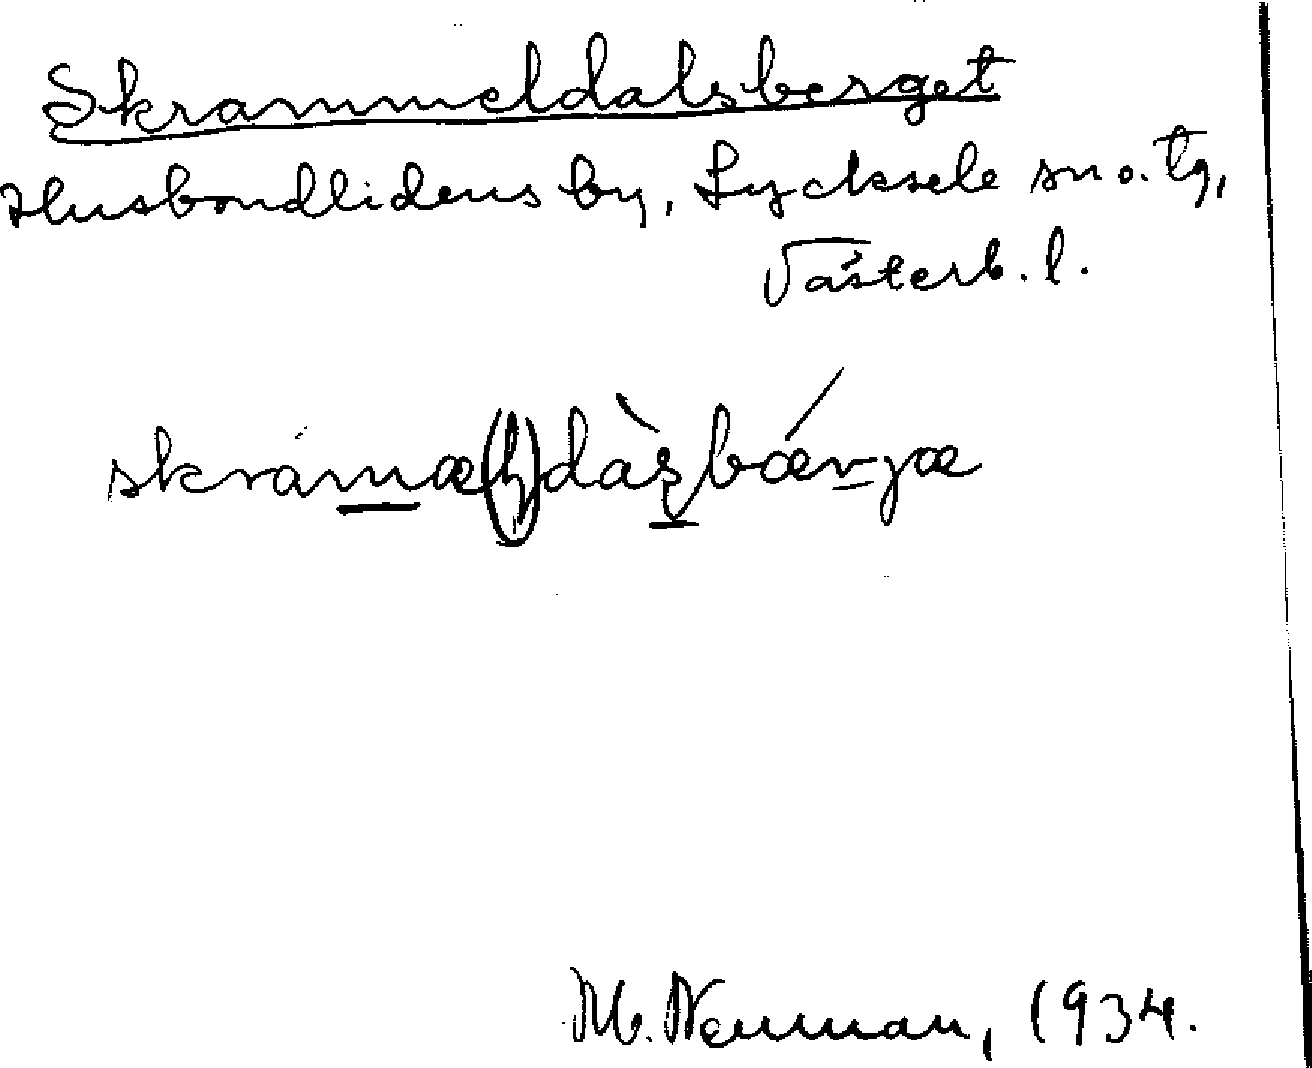 Skrammeldalsberget
Husbondlidens by, Lycksele sn o. tg,
Västerb. l.
skramæ(l)dàşbǽrjæ
M. Neuman, 1934.